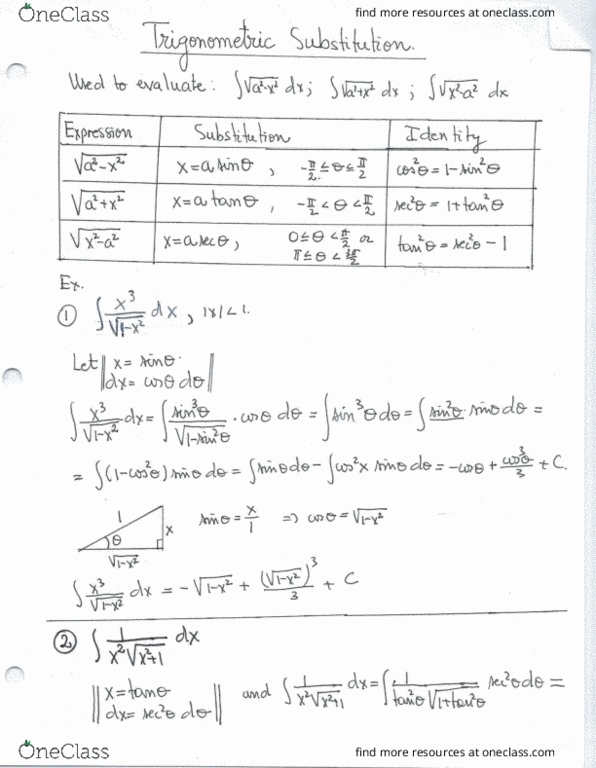 OneClass
find more resources at oneclass.com
Trigonometric Substitution.
Used to evaluate: ∫√a²-x² dx; ∫√a²+x² dx; ∫√x²-a² dx
Expression Substitution Identity
√a²-x² x=a sinθ, -π/2 ≤ θ ≤ π/2 cos²θ = 1-sin²θ
√a²+x² x=a tanθ, -π/2 < θ < π/2 sec²θ = 1+tan²θ
√x²-a² x=a secθ, 0 ≤ θ < π/2 or π ≤ θ < 3π/2 tan²θ = sec²θ - 1
Ex.
① ∫ x³/√1-x² dx, |x| < 1.
Let || x = sinθ
dx = cosθ dθ ||
∫ x³/√1-x² dx = ∫ sin³θ/√1-sin²θ · cosθ dθ = ∫ sin³θ dθ = ∫ sin²θ · sinθ dθ =
= ∫ (1-cos²θ) sinθ dθ = ∫ sinθ dθ - ∫ cos²x sinθ dθ = -cosθ + cos³θ/3 + C.
1 θ x √1-x² sinθ = x/1 ⇒ cosθ = √1-x²
∫ x³/√1-x² dx = -√1-x² + (√1-x²)³/3 + C
② ∫ 1/x²√x²+1 dx
|| x = tanθ
dx = sec²θ dθ || and ∫ 1/x²√x²+1 dx = ∫ 1/tan²θ √1+tan²θ sec²θ dθ =
OneClass
find more resources at oneclass.com